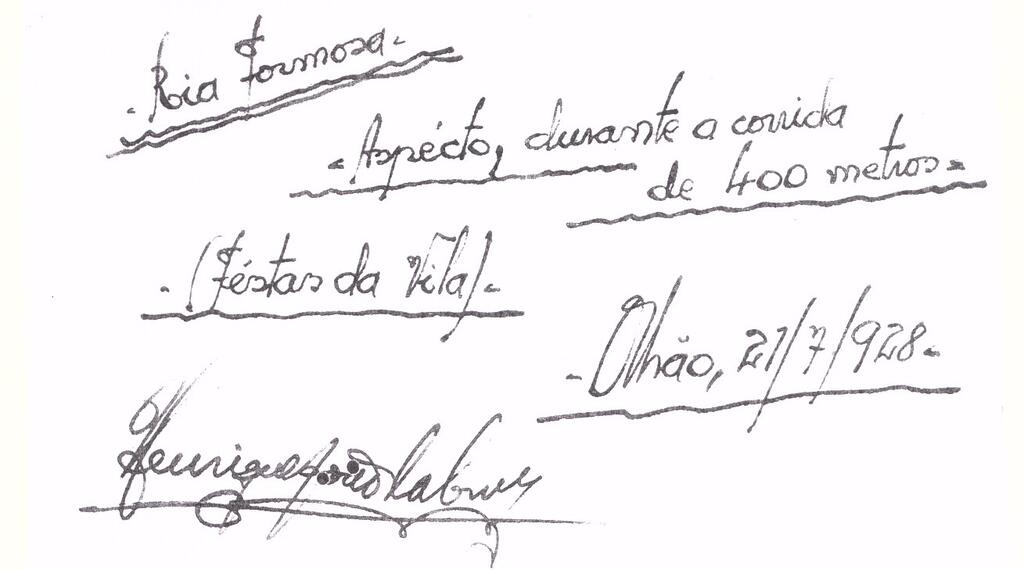 - Ria Formosa -
- Aspécto, durante a corrida
de 400 metros -
- (Féstas da Vila) -
- Olhão, 21/7/928 -
Henrique